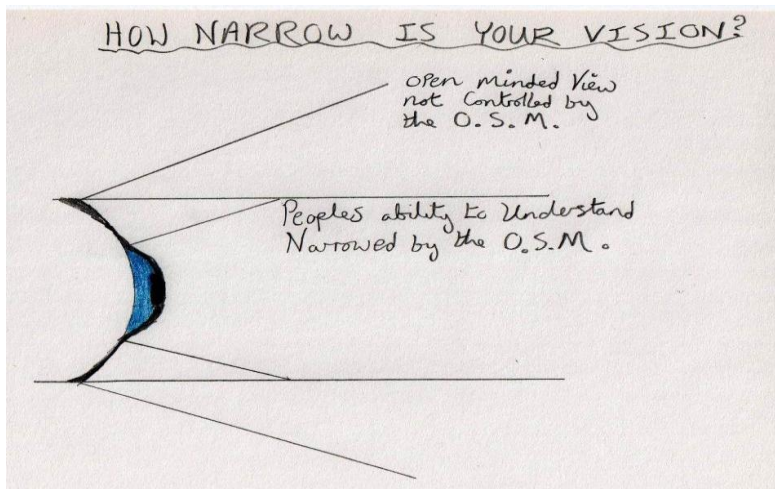 HOW NARROW IS YOUR VISION?
Open minded View
not Controlled by
the O.S.M.
Peoples ability to Understand
Narrowed by the O.S.M.